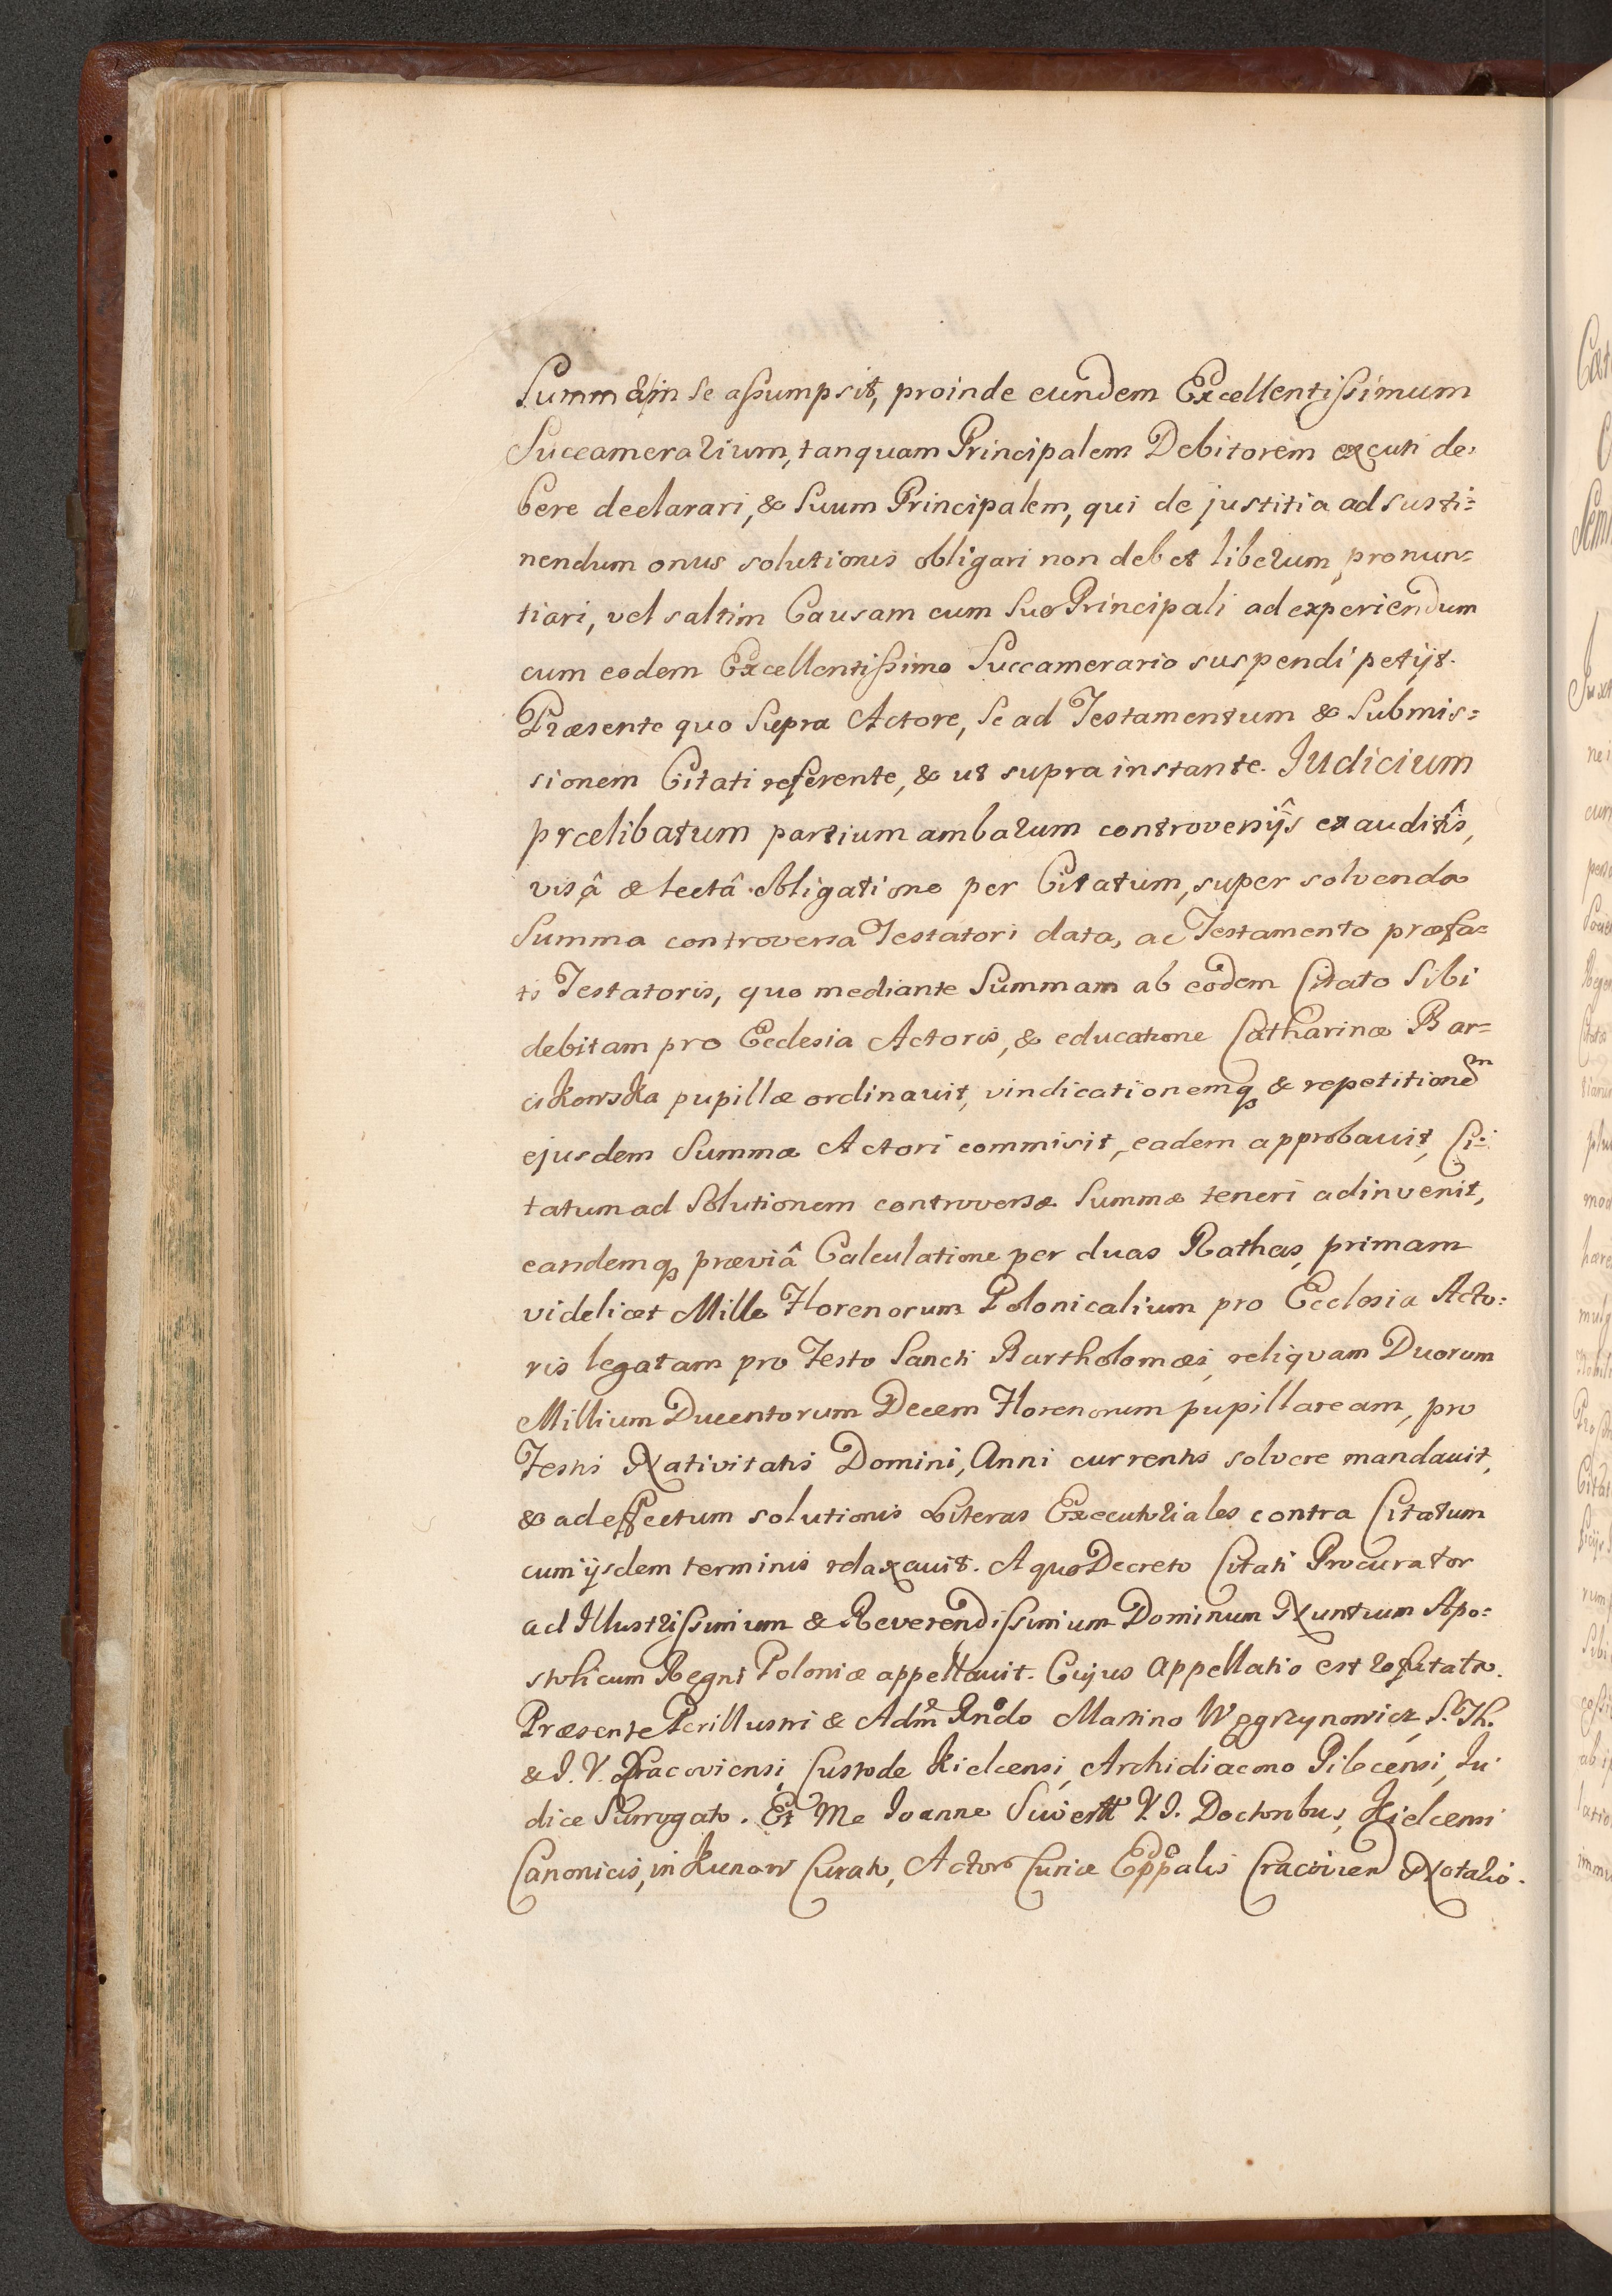 Summæ in se assumpsit, proinde eundem Excellentissimum
Succamerarium, tanquam Principalem Debitorem excuti de-
bere declarari, & Suum Principalem, qui de justitia ad susti-
nendum onus solutionis obligari non debet liberum pronun-
tiari, vel saltim Causam cum Suo Principali ad experiendum
cum eodem Excellentissimo Succamerario suspendi petijt.
Præsente quo Supra Actore, Se ad Testamentum & Submis-
sionem Citati referente, & ut supra instante. Judicium
prælibatum partium ambarum controversijs exauditîs,
visâ & lectâ Obligatione per Citatum, super solvenda
Summa controversa Testatori data, ac Testamento præfa-
ti Testatoris, quo mediante Summam ab eodem Citato Sibi
debitam pro Ecclesia Actoris, & educatione Catharinæ Bar-
cikowska pupillæ ordinauit, vindicationemq & repetitionem
ejusdem Summæ Actori commisit, eadem approbauit, Ci-
tatum ad Solutionem controversæ Summæ teneri adinvenit,
eandemq præviâ Calculatione per duas Rathas, primam
videlicet Mille Florenorum Polonicalium pro Ecclesia Acto-
ris legatam pro Festo Sancti Bartholomæi, reliquam Duorum
Millium Ducentorum Decem Florenorum pupillaream, pro
Festis Nativitatis Domini, Anni currentis solvere mandauit,
& ad effectum solutionis Literas Executoriales contra Citatum
cum ijsdem terminis relaxauit. A quo Decreto Citati Procurator
ad Illustrissimum & Reverendissimum Dominum Nuntium Apo-
stolicum Regni Poloniæ appellauit. Cujus Appellatio est refutata.
Præsente Perillustri & Adm Rndo Martino Węgrzynowicz, S. Th.
& I. V. Cracoviensi, Custode Kielcensi, Archidiacono Pilecensi, Iu
dice Surrogato. Et Me Ioanne Siwertt V. I. Doctoribus, Kielcensi
Canonicis, in Kunow Curato, Actor Curiæ Eppalis Cracovien Notario.